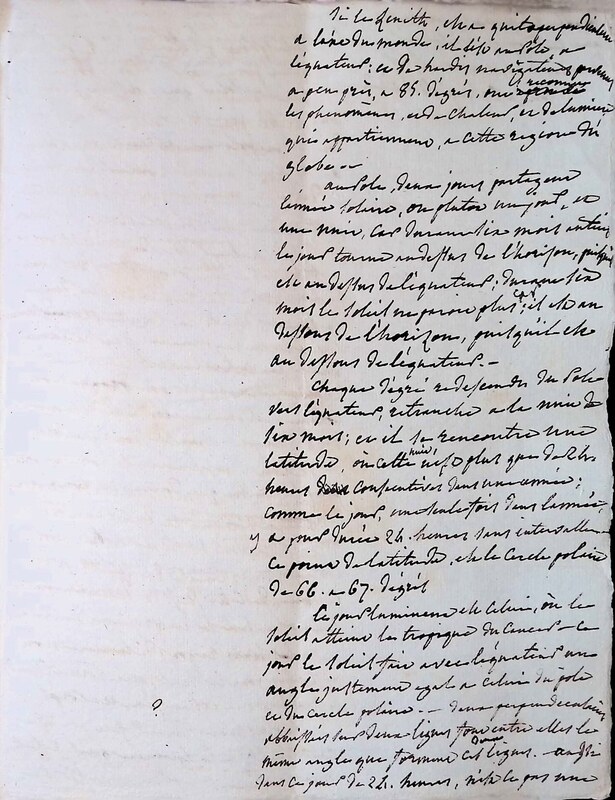 Si le Zenith, est a quitt perpendiculaire
a l'axe du monde, il est au Pole, a
l'équateur; et de hardis navigateurs parvenus
a peu près, a 85. dégrés, ont reconnu
les phenomènes, et de chaleur, et de lumiere
qui appartiennent, a cette region du
globe —
au Pole, deux jours partagent
l'année solaire, ou plutot un jour, et
une nuit, car durant six mois entiers
le jour tourne au dessus de l'horison, puisqu'il
est au dessus de l'équateur; durant six
mois le soleil ne paroit plus, car il est au
dessous de l'horizon, puisqu'il est
au dessous de l'équateur. —
Chaque dégré redescendu du Pole
vers l'équateur, retranche a la nuit de
six mois; et il se rencontre une
latitude, où cette nuit n'est plus que de 24.
heures consecutives dans une année;
comme le jour, une seule fois dans l'année,
y a pour durée 24. heures sans intervalle
ce point de latitude, est le cercle polaire
de 66. a 67. dégrés
Ce jour lumineux est celui, où le
soleil atteint le tropique du Cancer — ce
jour le soleil fait avec l'équateur un
angle justement egal a celui du pole
et du cercle polaire. — deux perpendiculaires
?
abbaissées sur deux lignes font entre elles le
même angle que forment ces deux lignes. — aussi
dans ce jour de 24. heures, n'est ce pas une